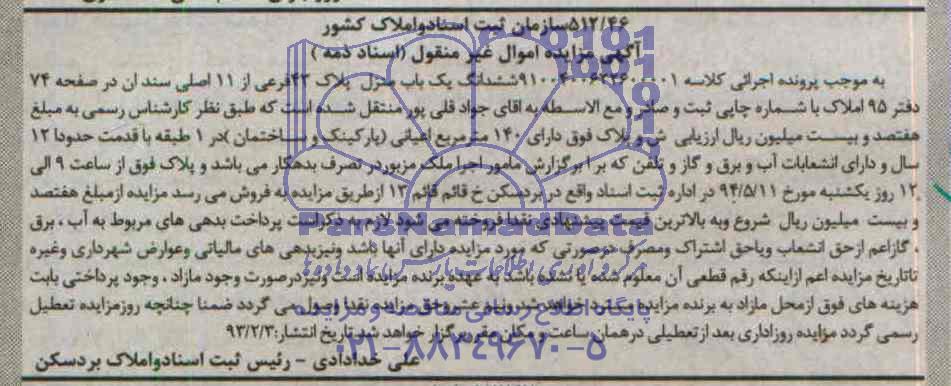 ۵۱۲/۴۶سازمان ثبت اسنادواملاک کشور
آگهی مزایده اموال غیر منقول (اسناد ذمه )
به موجب پرونده اجرائی کلاسه ششدانگ یک باب منزل پلاک ۴۲فرعی از ۱۱ اصلی سند ان در صفحه ۷۴
دفتر ۹۵ املاک با شماره چاپی ثبت و صادر و مع الاسطه به اقای جواد قلی پور منتقل شده است که طبق نظر کارشناس رسمی به مبلغ
هفتصد و بیست میلیون ریال ارزیابی شده و پلاک فوق دارای ۱۴۰ متر مربع اعیانی (پارکینگ و ساختمان )در ۱ طبقه با قدمت حدودا ۱۲
سال و دارای انشعابات آب و برق و گاز و تلفن که بر ابر گزارش مامور اجرا ملک مزبور در تصرف بدهکار می باشد و پلاک فوق از ساعت ۹ الی
۱۲ روز یکشنبه مورخ ۹۴/۵/۱۱ در اداره ثبت اسناد واقع در بردسکن خ قائم قائم ۱۳ ازطریق مزایده به فروش می رسد مزایده ازمبلغ هفتصد
و بیست میلیون ریال شروع وبه بالاترین قیمت پیشنهادی نقدا فروخته می شود لازم به ذکر است پرداخت بدهی های مربوط به آب ، برق
، گازاعم ازحق انشعاب ویاحق اشتراک ومصرف درصورتی که مورد مزایده دارای آنها باشد ونیزبدهی های مالیاتی وعوارض شهرداری وغیره
تاتاریخ مزایده اعم ازاینکه رقم قطعی آن معلوم شده یا نشده باشد به عهده برنده مزایده است ونیزدرصورت وجود مازاد ، وجوه پرداختی بابت
هزینه های فوق ازمحل مازاد به برنده مزایده مسترد خواهد شد ونیم عشر وحق مزایده نقدا وصول می گردد ضمنا چنانچه روزمزایده تعطیل
رسمی گردد مزایده روزاداری بعد ازتعطیلی درهمان ساعت و مکان مقرر برگزار خواهد شد تاریخ انتشار:۹۳/۲/۳
علی خدادادی - رئیس ثبت اسنادواملاک بردسکن
ParsNamadData
پایگاه اطلاع رسانی مناقصه و مزایده
۰۲۱-۸۸۳۴۹۶۷۰-۵